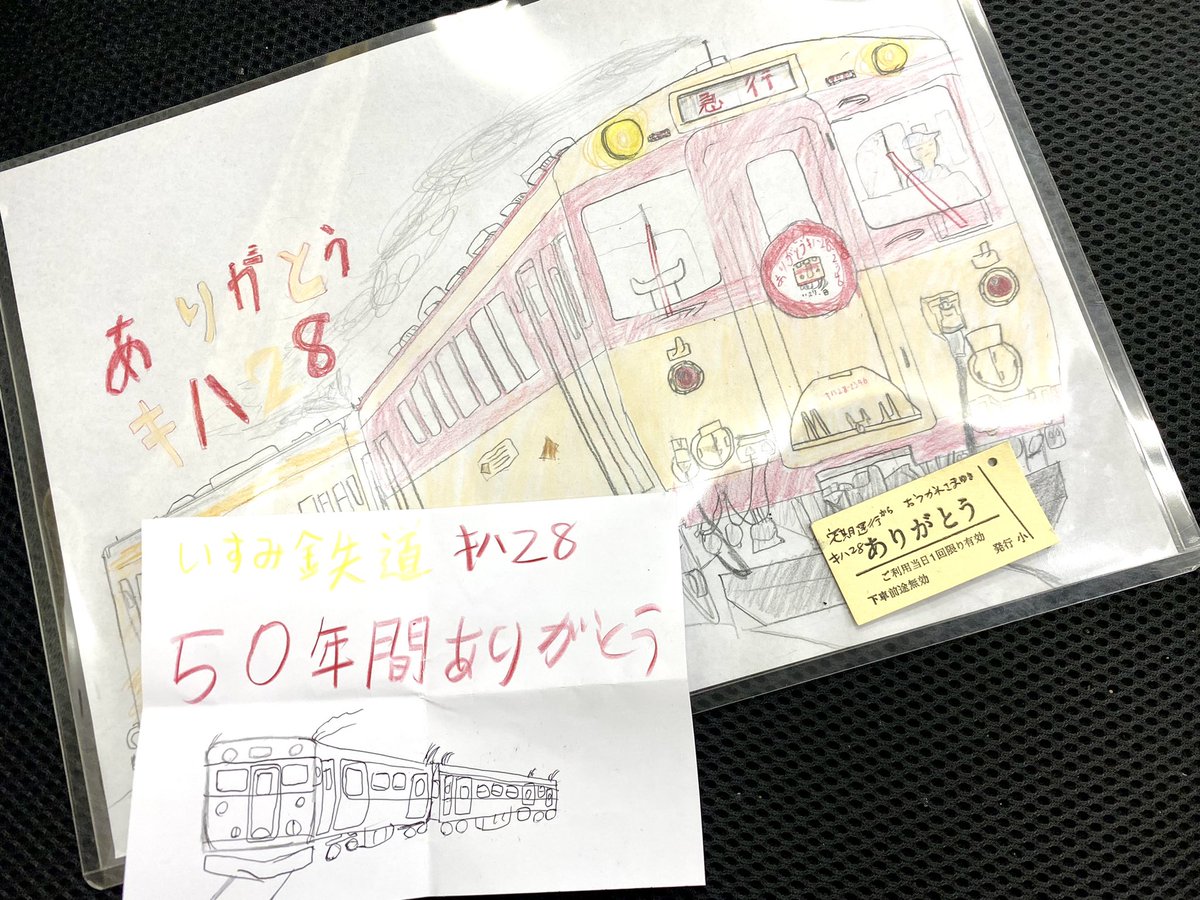 急行
ありがとう
キハ28
ありがとうキハ28
キハ28-2346
定期運行から おつかれさまゆき
キハ28ありがとう
ご利用当日1回限り有効
下車前途無効
発行 小
いすみ鉄道 キハ28
50年間ありがとう